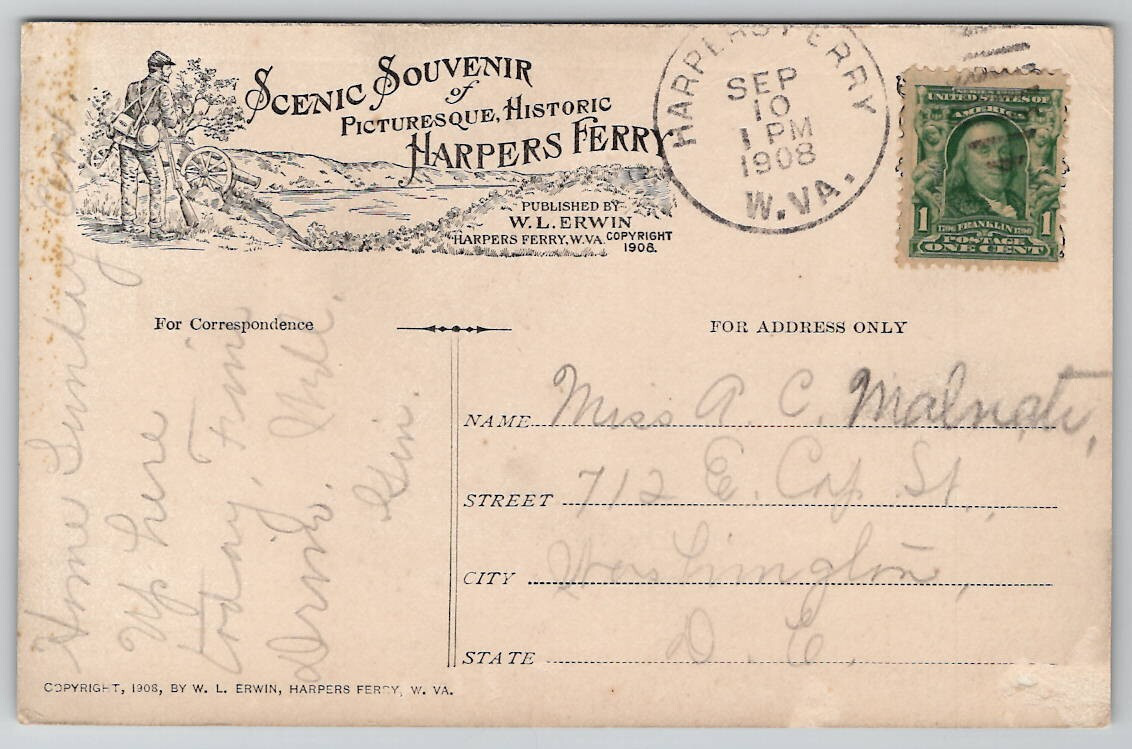 SCENIC SOUVENIR
of
PICTURESQUE, HISTORIC
HARPERS FERRY
PUBLISHED BY
W. L. ERWIN
HARPERS FERRY, W. VA. COPYRIGHT
1908.
HARPERS FERRY
SEP
10
1 PM
1908
W. VA.
SERIES 1902
UNITED STATES OF
AMERICA
1 1
1706 FRANKLIN 1790
POSTAGE
ONE CENT
For Correspondence
FOR ADDRESS ONLY
Home Sunday
Up here
today. Fine
Drive. Will
Gin.
NAME Miss A. C. Malnati,
STREET 712 E. Cap St,
CITY Washington,
STATE D. C.
COPYRIGHT, 1908, BY W. L. ERWIN, HARPERS FERRY, W. VA.